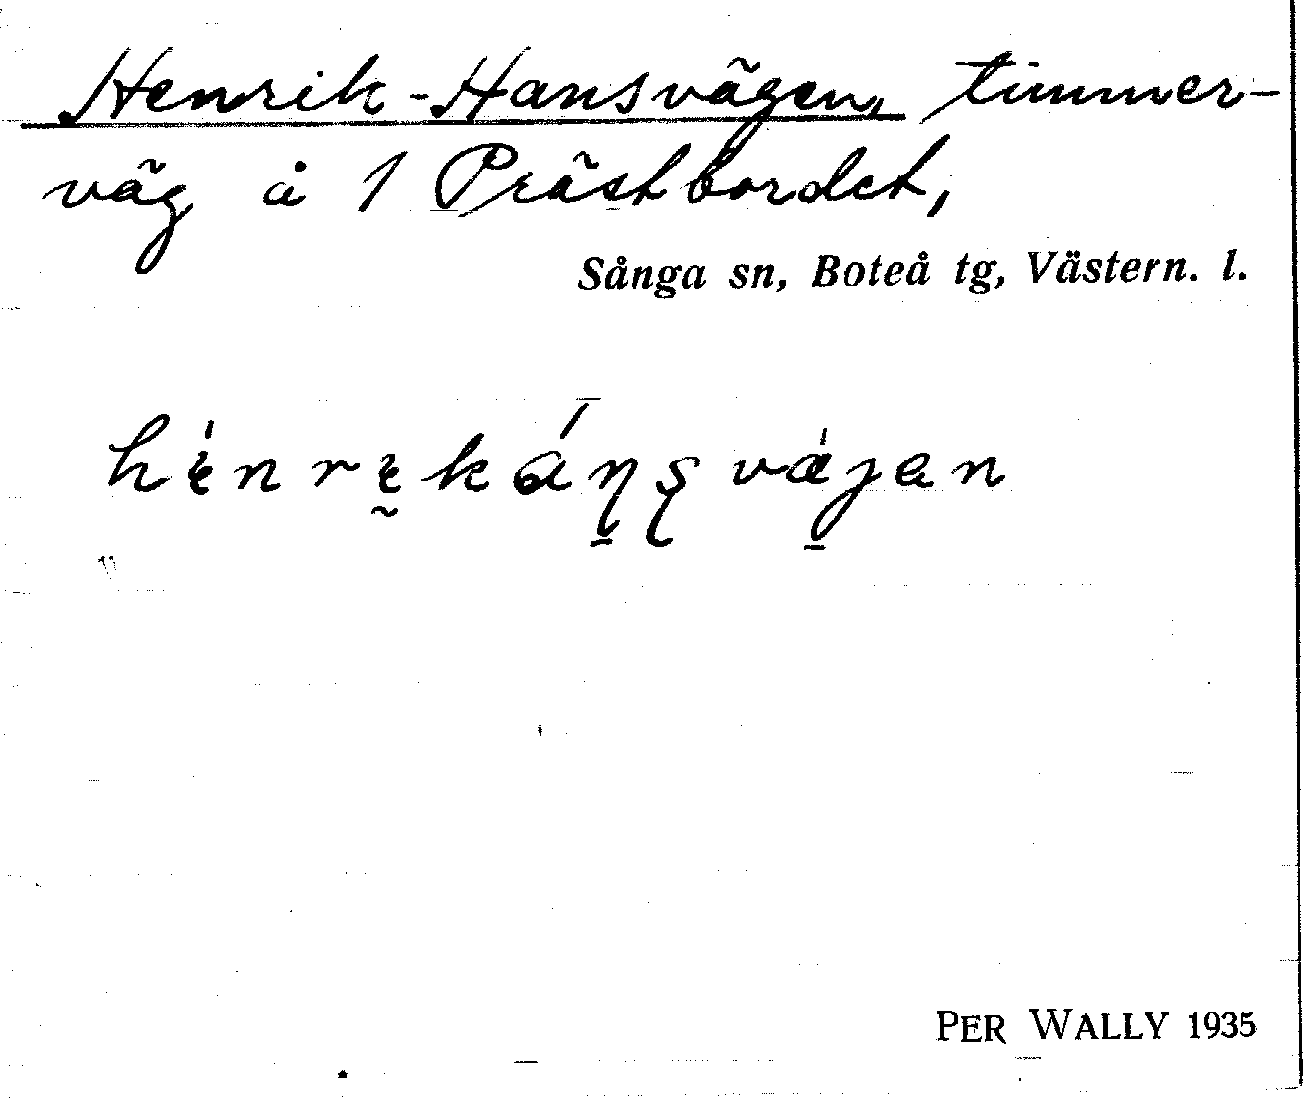 Henrik-Hansvägen, timmer-
väg å 1 Prästbordet,
Sånga sn, Boteå tg, Västern. l.
PER WALLY 1935